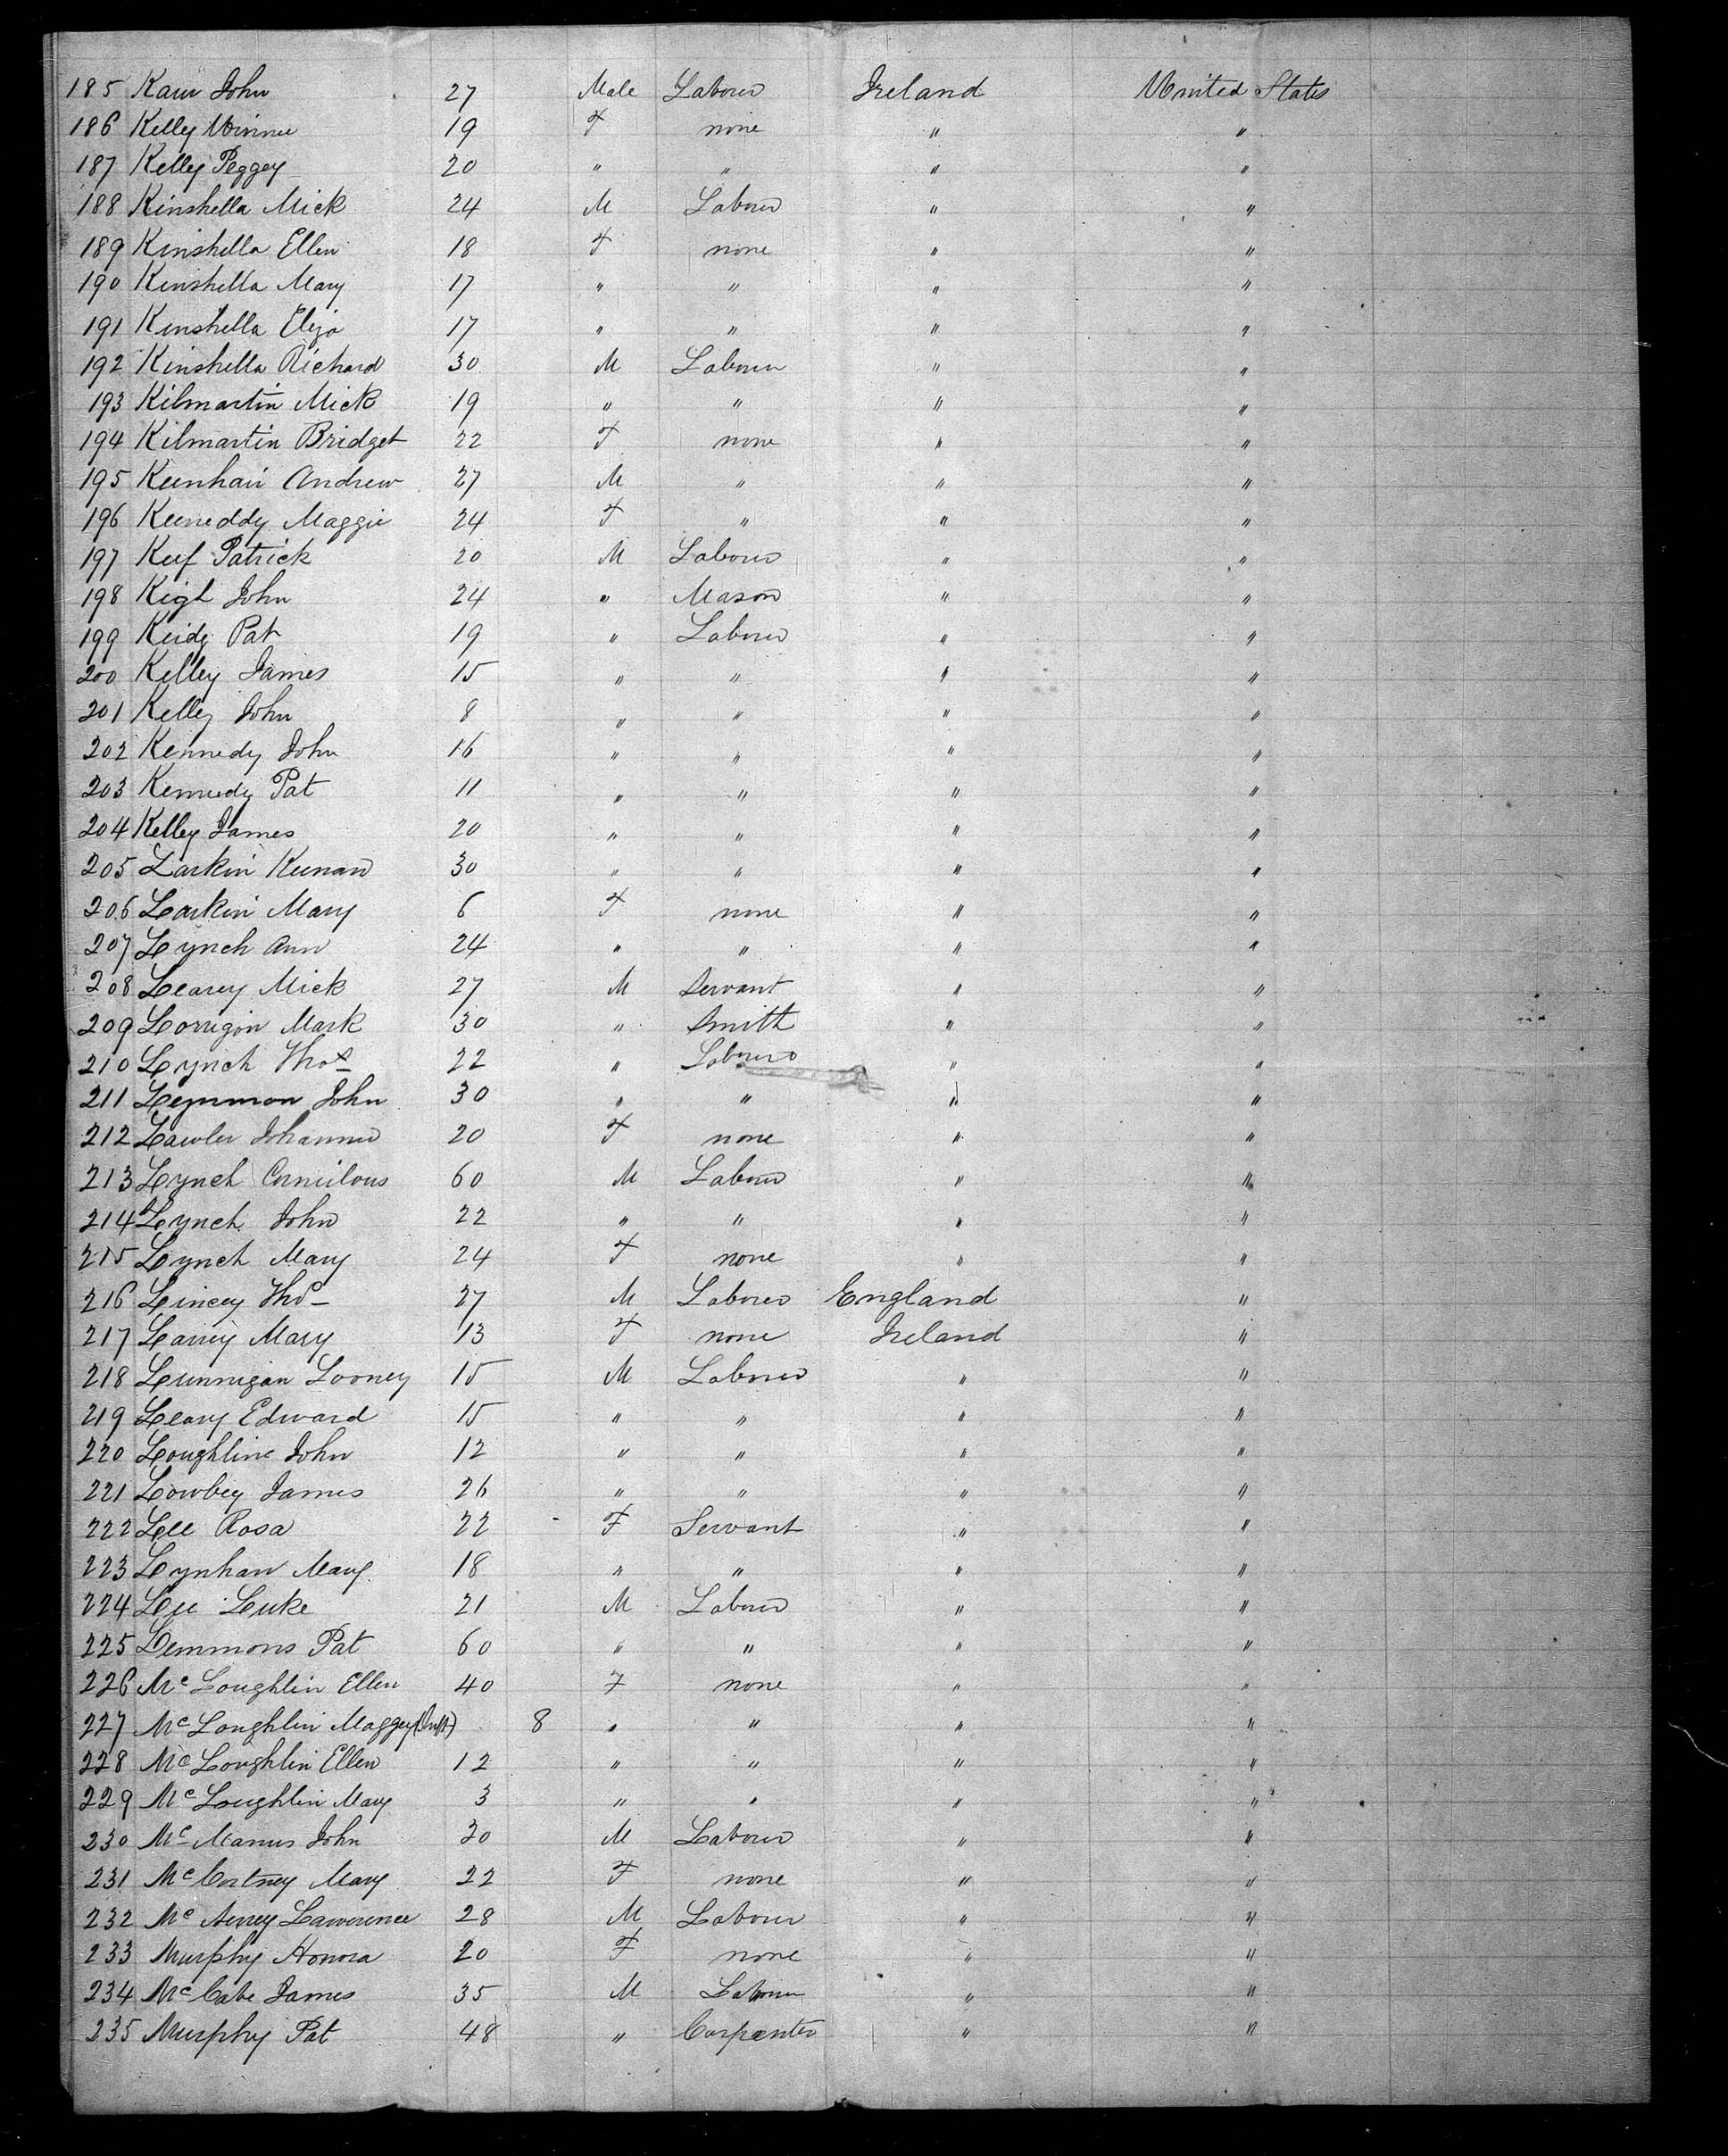 185 Kaur John 27 Male Labourer Ireland United States
186 Kelly Winnie 19 F none " "
187 Kelly Peggey 20 " " " "
188 Kinshella Mick 24 M Labourer " "
189 Kinshella Ellen 18 F none " "
190 Kinshella Mary 17 " " " "
191 Kinshella Eliza 17 " " " "
192 Kinshella Richard 30 M Labourer " "
193 Kilmartin Mick 19 " " " "
194 Kilmartin Bridget 22 F none " "
195 Keenhan Andrew 27 M " " "
196 Keeneddy Maggie 24 F " " "
197 Keef Patrick 20 M Labourer " "
198 John 24 " Mason " "
199 Pat 19 " Labourer " "
200 Kelley James 15 " " " "
201 Kelley John 8 " " " "
202 Kennedy John 16 " " " "
203 Kennedy Pat 11 " " " "
204 Kelley James 20 " " " "
205 Larkin Keenan 30 " " " "
206 Larkin Mary 6 F none " "
207 Lynch Ann 24 " " " "
208 Learey Mick 27 M Servant " "
209 Lorrigan Mark 30 " Smith " "
210 Lynch Thos 22 " Labourer " "
211 Leynmon John 30 " " " "
212 Lawler Johanna 20 F none " "
213 Lynch Cornilous 60 M Labourer " "
214 Lynch John 22 " " " "
215 Lynch Mary 24 F none " "
216 Lincey Tho 27 M Labourer England "
217 Mary 13 F none Ireland "
218 Lunnigan Looney 15 M Labourer " "
219 Leary Edward 15 " " " "
220 Loughline John 12 " " " "
221 Lowbey James 26 " " " "
222 Lee Rosa 22 F Servant " "
223 Lynhan Mary 18 " " " "
224 Lee Luke 21 M Labourer " "
225 Lemmons Pat 60 " " " "
226 Mc Loughlin Ellen 40 F none " "
227 Mc Loughlin Maggey (Inft) 8 " " " "
228 Mc Loughlin Ellen 12 " " " "
229 Mc Loughlin Mary 3 " " " "
230 Mc Manus John 30 M Labourer " "
231 Mc Cortney Mary 22 F none " "
232 Mc Lawerence 28 M Labourer " "
233 Murphy Honora 20 F none " "
234 Mc Cabe James 35 M Labourer " "
235 Murphy Pat 48 " Carpenter " "